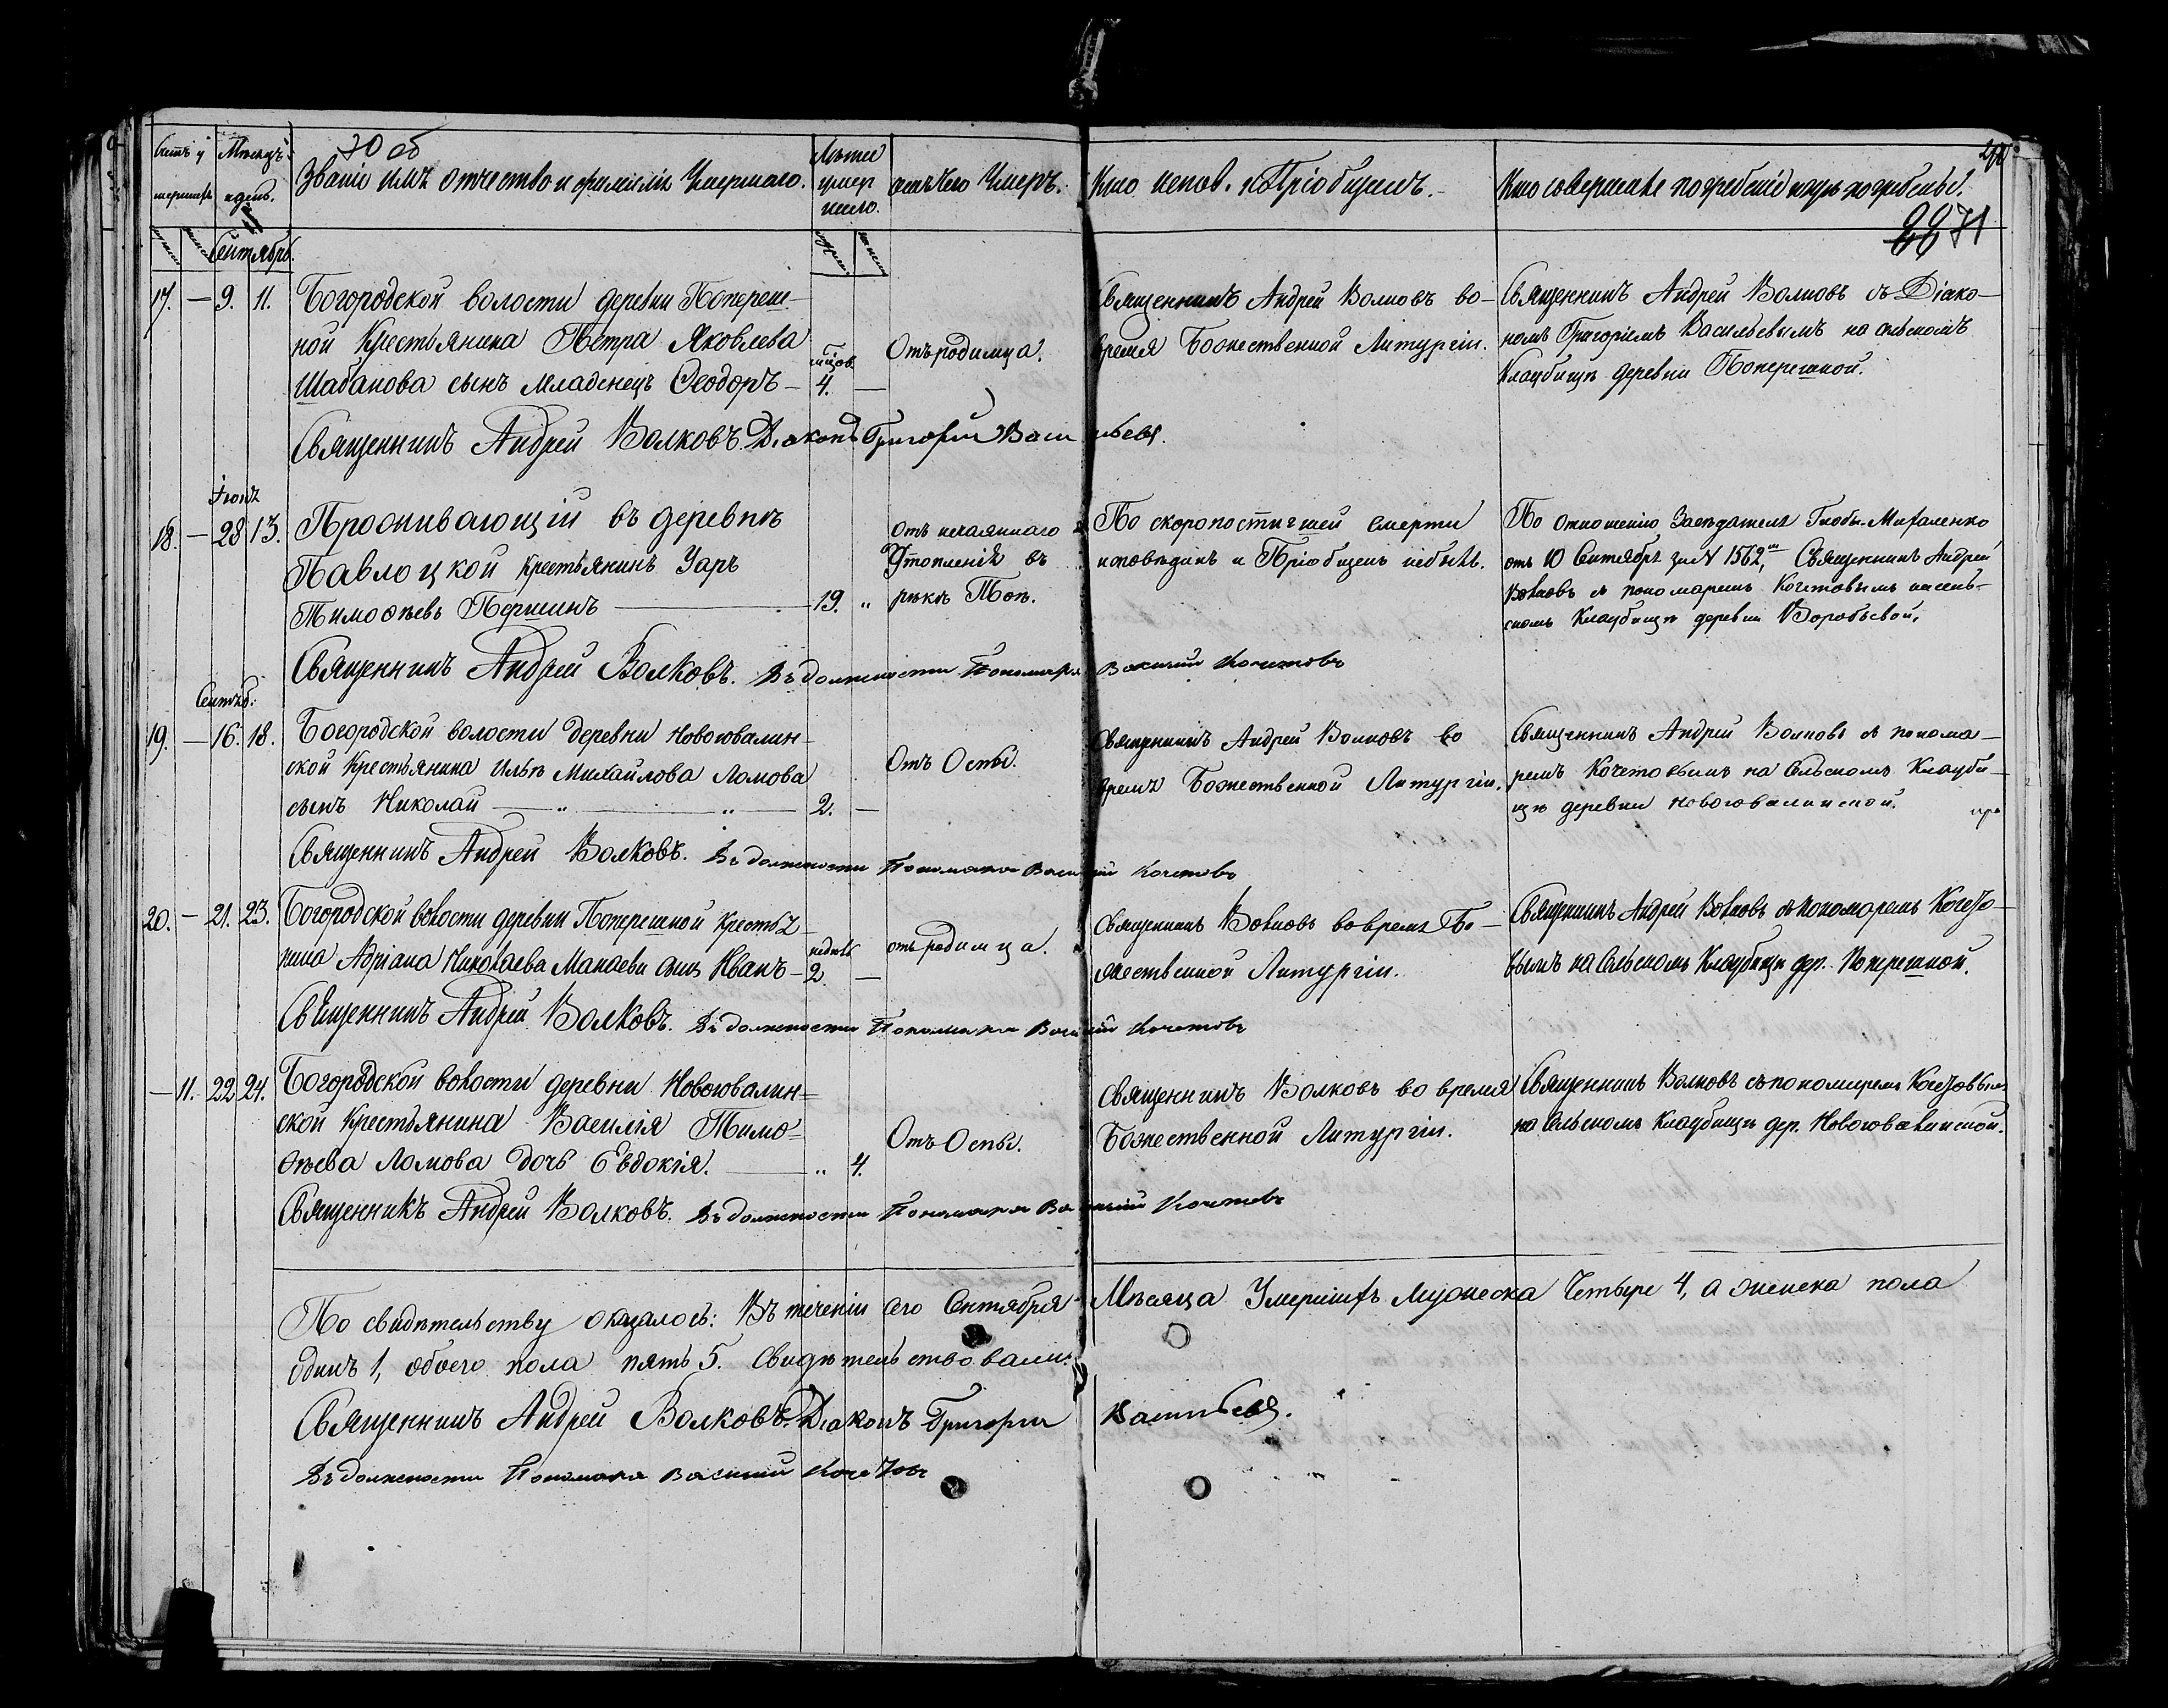 70 об
Счетъ у
мершихъ
Мѣсяцъ
и день.
Званіе имя отчество и фамилія Умершаго.
Лѣта
умер
шаго.
отъ чего Умеръ.
Кто испов. и Пріобщалъ.
Кто совершалъ погребеніе и гдѣ погребены.
71
Сентябрь.
17. — 9. 11. Богородской волости деревни Попереш-
ной Крестьянина Петра Яковлева
Шабанова сынъ младенецъ Ѳеодоръ — 4. —
Отъ родимца.
Священникъ Андрей Волковъ во
время Божественной Литургіи.
Священникъ Андрей Волковъ съ Діако-
номъ Григоріемъ Васильевымъ на сельскомъ
Кладбищѣ деревни Поперешной.
Священникъ Андрей Волковъ. Діаконъ Григорій Васильевъ.
Іюня
18. — 28 13. Проживающій въ деревнѣ
Павлоцкой крестьянинъ Уаръ
Тимоѳѣевъ Першинъ — 19. „
отъ нечаяннаго
Утопленія въ
рѣкѣ Томѣ.
По скоропостигшей смерти
исповѣданъ и Пріобщенъ небылъ.
По отношенію Засѣдателя Глобы-Михаленко
отъ 10 Сентября за № 1562, Священникъ Андрей
Волковъ съ пономаремъ Кочетовымъ на сель-
скомъ Кладбищѣ деревни Воробьевой.
Священникъ Андрей Волковъ. Въ должности Пономаря Василій Кочетовъ
Сентяб.
19. — 16. 18. Богородской волости деревни Новоювалин-
ской Крестьянина Ильи Михайлова Ломова
сынъ Николай — „ — „ — 2. —
Отъ Оспы.
Священникъ Андрей Волковъ во
время Божественной Литургіи.
Священникъ Андрей Волковъ съ понома-
ремъ Кочетовымъ на Сельскомъ Кладби-
щѣ деревни Новоювалинской.
Священникъ Андрей Волковъ. Въ должности Пономаря Василій Кочетовъ
20. — 21. 23. Богородской волости деревни Поперешной Крестья-
нина Адріана Николаева Манаева сынъ Иванъ — недѣль 2. —
отъ родимца.
Священникъ Волковъ во время Бо-
жественной Литургіи.
Священникъ Андрей Волковъ съ пономаремъ Кочето-
вымъ на Сельскомъ Кладбищѣ дер. Поперешной.
Священникъ Андрей Волковъ. Въ должности Пономаря Василій Кочетовъ
— 11. 22 24. Богородской волости деревни Новоювалин-
ской Крестьянина Василія Тимо-
ѳѣева Ломова дочь Евдокія. — „ 4.
Отъ Оспы.
Священникъ Волковъ во время
Божественной Литургіи.
Священникъ Волковъ съ пономаремъ Кочетовымъ
на Сельскомъ Кладбищѣ дер. Новоювалинской.
Священникъ Андрей Волковъ. Въ должности Пономаря Василій Кочетовъ
По свидѣтельству оказалось: Въ теченіи сего Сентября Мѣсяца Умершихъ Мужеска Четыре 4, а женска пола
одинъ 1, обоего пола пять 5. Свидѣтельствовали:
Священникъ Андрей Волковъ. Діаконъ Григорій Васильевъ.
Въ должности Пономаря Василій Кочетовъ